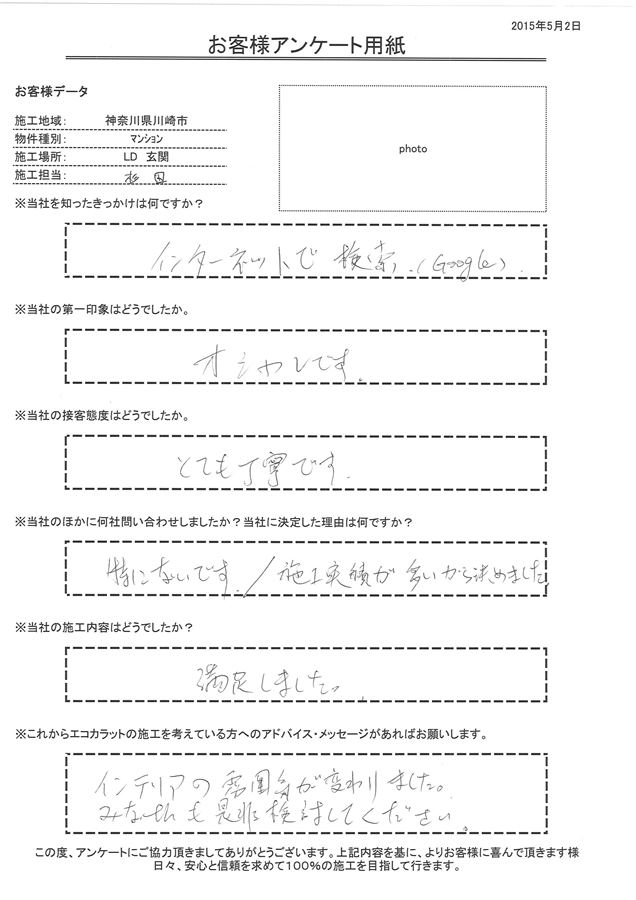 2015年5月2日
お客様アンケート用紙
お客様データ
photo
施工地域: 神奈川県川崎市
物件種別: マンション
施工場所: LD 玄関
施工担当: 杉田
※当社を知ったきっかけは何ですか?
インターネットで検索.(Google).
※当社の第一印象はどうでしたか。
オシャレです.
※当社の接客態度はどうでしたか。
とても丁寧です.
※当社のほかに何社問い合わせしましたか?当社に決定した理由は何ですか?
特にないです. /施工実績が多いから決めました
※当社の施工内容はどうでしたか?
満足しました。
※これからエコカラットの施工を考えている方へのアドバイス・メッセージがあればお願いします。
インテリアの雰囲気が変わりました。
みなさんも是非検討してください.
この度、アンケートにご協力頂きましてありがとうございます。上記内容を基に、よりお客様に喜んで頂きます様
日々、安心と信頼を求めて100%の施工を目指して行きます。